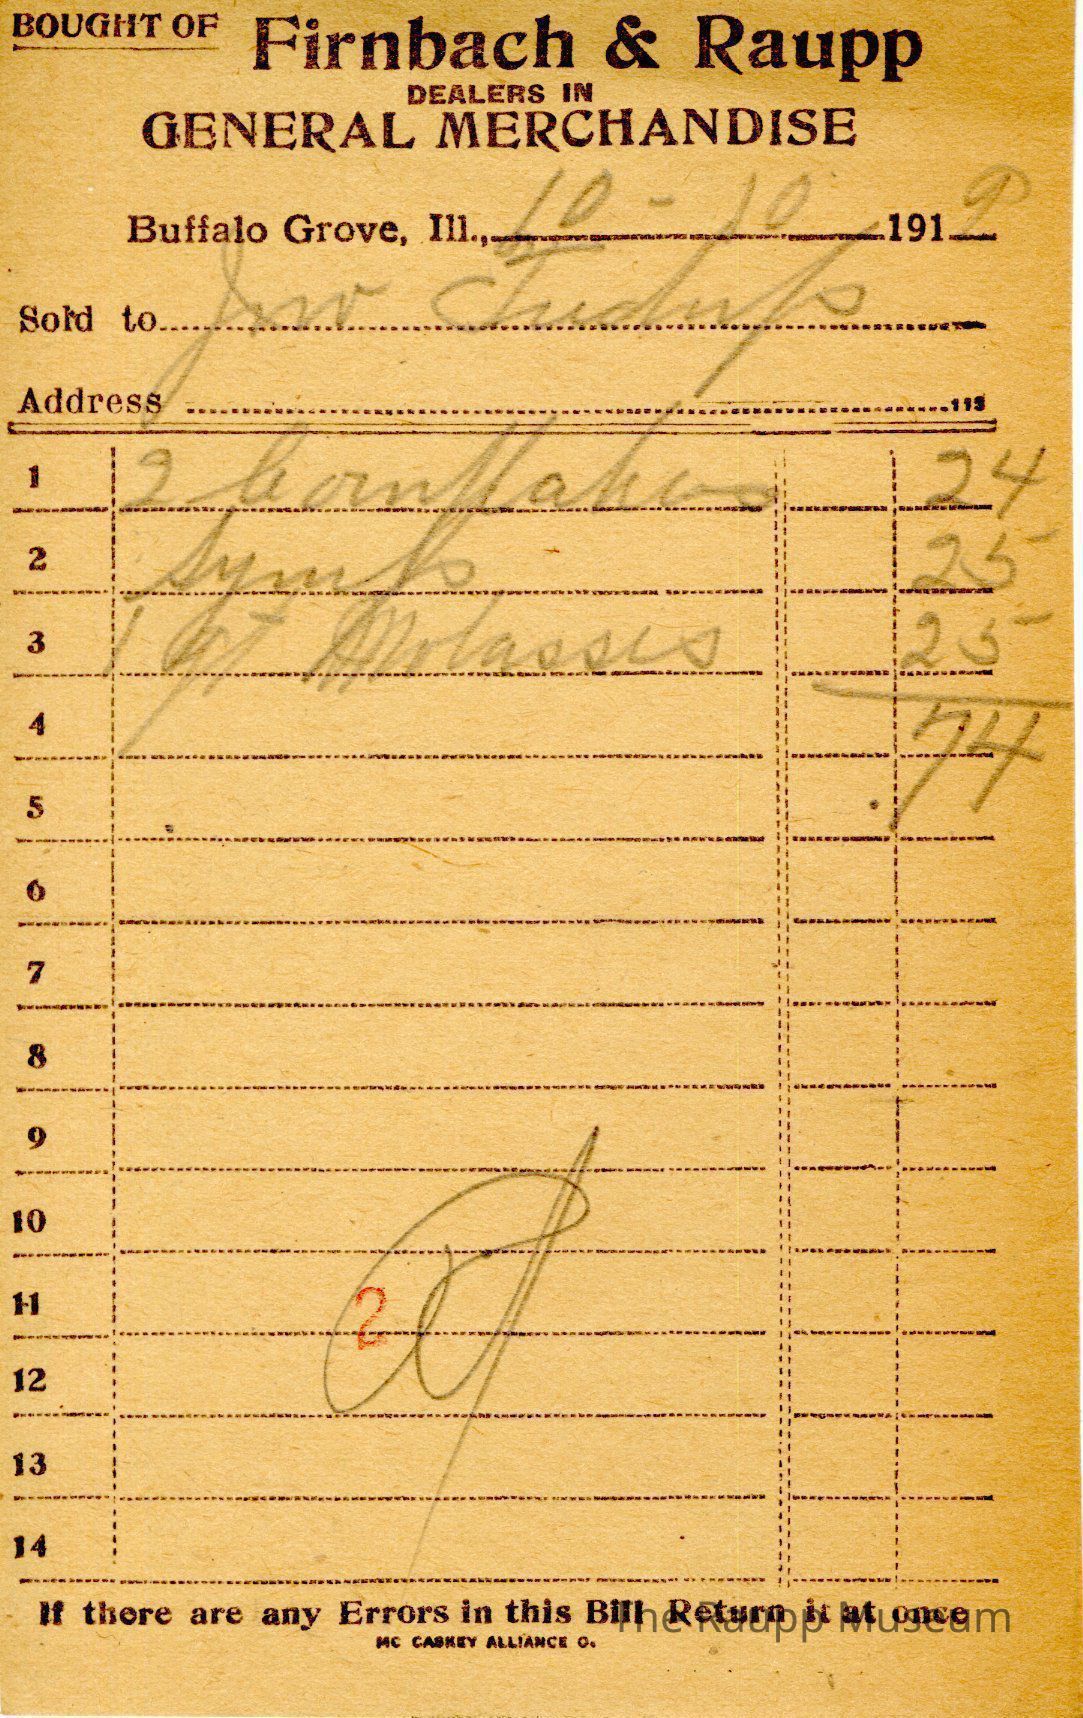 BOUGHT OF Firnbach & Raupp
DEALERS IN
GENERAL MERCHANDISE
Buffalo Grove, Ill., 10-10 1919
Sold to
Address 113
1 2 Cornflakes 24
2 Syrup 25
3 1 qt Molasses 25
4 74
5
6
7
8
9
10
11 2
12
13
14
If there are any Errors in this Bill Return it at once
The Raupp Museum
MC CASKEY ALLIANCE O.